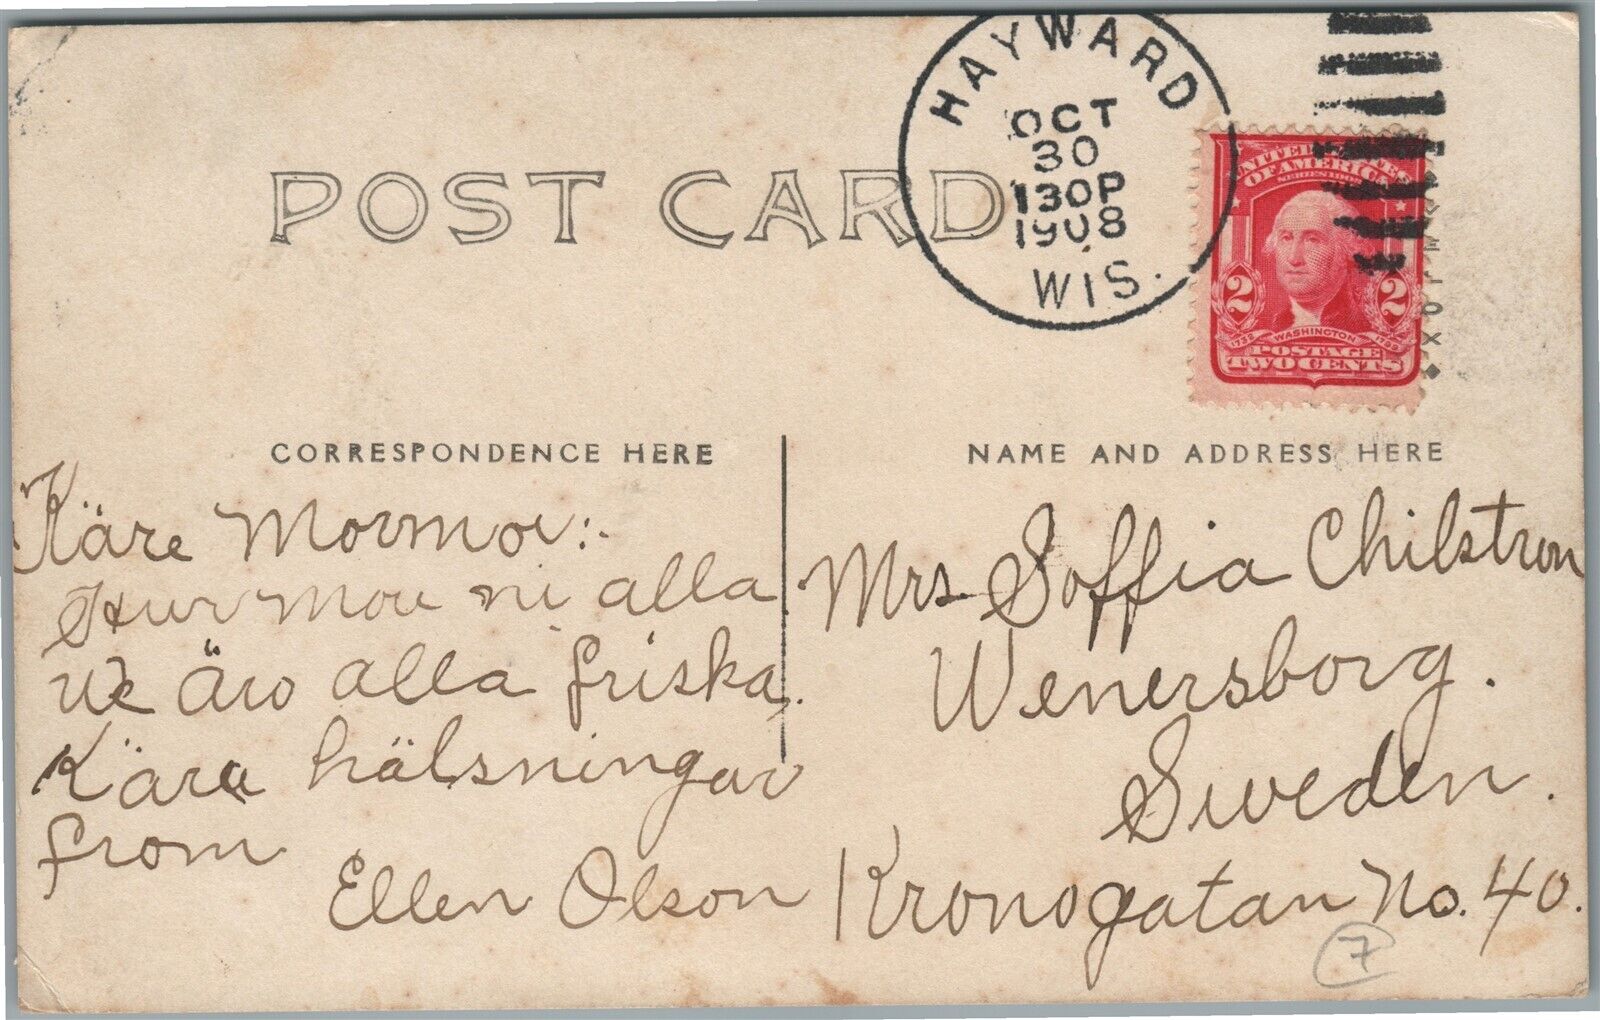 POST CARD
HAYWARD
OCT
30
130P
1908
WIS.
UNITED STATES
OF AMERICA
SERIES 1902
2 2
1732 WASHINGTON 1799
POSTAGE
TWO CENTS
CORRESPONDENCE HERE
Käre Mormor:-
Hur mår ni alla
We äro alla friska.
Kära hälsningar
from
Ellen Olson
NAME AND ADDRESS HERE
Mrs. Soffia Chilstron
Wenersborg.
Sweden.
Kronogatan No. 40.
7